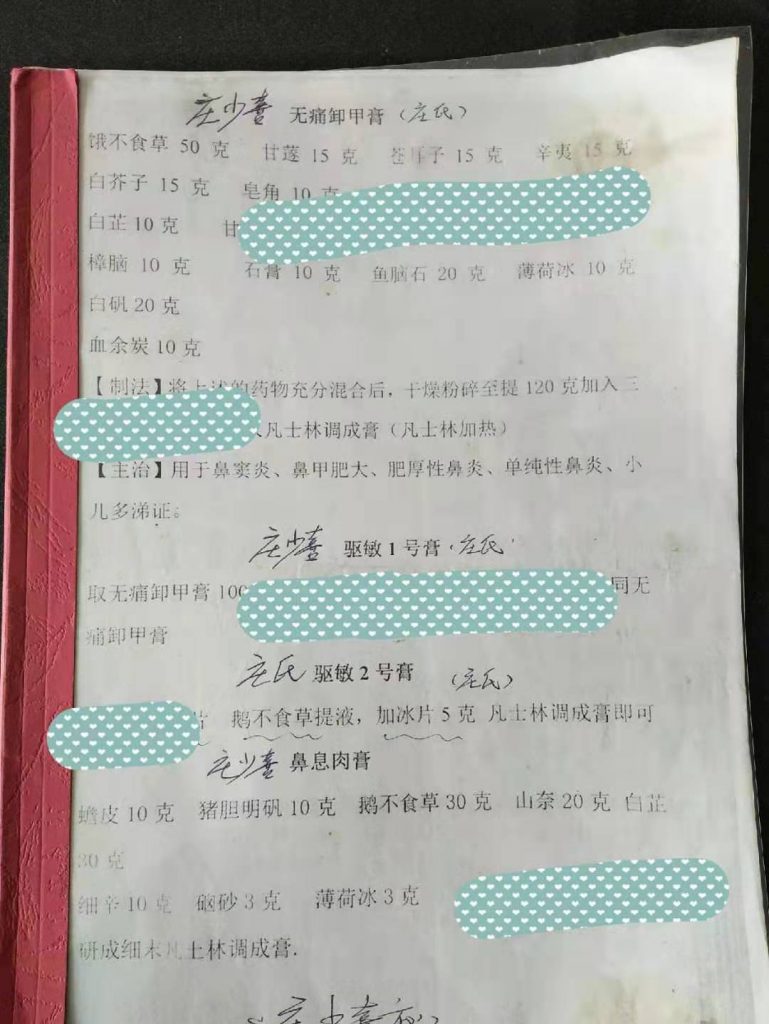 庄少喜 无痛卸甲膏（庄氏）
饿不食草 50 克 甘遂 15 克 苍耳子 15 克 辛夷 15 克
白芥子 15 克 皂角 10 克
白芷 10 克 甘
樟脑 10 克 石膏 10 克 鱼脑石 20 克 薄荷冰 10 克
白矾 20 克
血余炭 10 克
【制法】将上述的药物充分混合后，干燥粉碎至提 120 克加入三
凡士林调成膏（凡士林加热）
【主治】用于鼻窦炎、鼻甲肥大、肥厚性鼻炎、单纯性鼻炎、小
儿多涕证。
庄少喜 驱敏 1 号膏 庄氏
取无痛卸甲膏 100 同无
痛卸甲膏
庄氏 驱敏 2 号膏 （庄氏）
鹅不食草提液，加冰片 5 克 凡士林调成膏即可
庄少喜 鼻息肉膏
蟾皮 10 克 猪胆明矾 10 克 鹅不食草 30 克 山奈 20 克 白芷
30 克
细辛 10 克 硇砂 3 克 薄荷冰 3 克
研成细末凡士林调成膏.
庄少喜